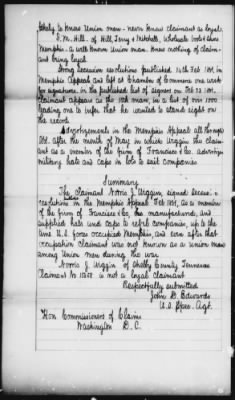 likely to know Union men - never knew claimant as loyal.
S. M. Hill, of Hill, Terry & Mitchell, Wholesale boots & shoes
Memphis - a well known Union man. Knew nothing of claim-
ant being loyal.
Strong Secession resolutions published 14th Feb 1861, in
Memphis Appeal and left at Chamber of Commerce one week
for signatures. in the published list of signers on Feb 22 1861,
Claimant appears as the man, in a list of over 1000
leading one to infer that he wanted to stand right on
the record.
Advertisements in the Memphis Appeal all through
1861. after the month of May in which Wiggin the claim-
ant as a member of the firm of Francisco & Co. advertizes
military hats and caps in lots to suit companies
Summary
The Claimant Norris J. Wiggin, signed Secession
resolutions in Memphis Appeal Feb 1861, as a member
of the firm of Francisco & Co, he manufactured, and
supplied hats and caps to rebel companies, up to the
time U.S. forces occupied Memphis, and even after that
occupation claimant was not known as a union man
among Union men during the war.
Norris J. Wiggin of Shelby County Tennessee
Claimant No is not a loyal claimant
Respectfully submitted
John D. Edwards
U.S. Spec. Agt.
Hon Commissioners of Claims
Washington D.C.